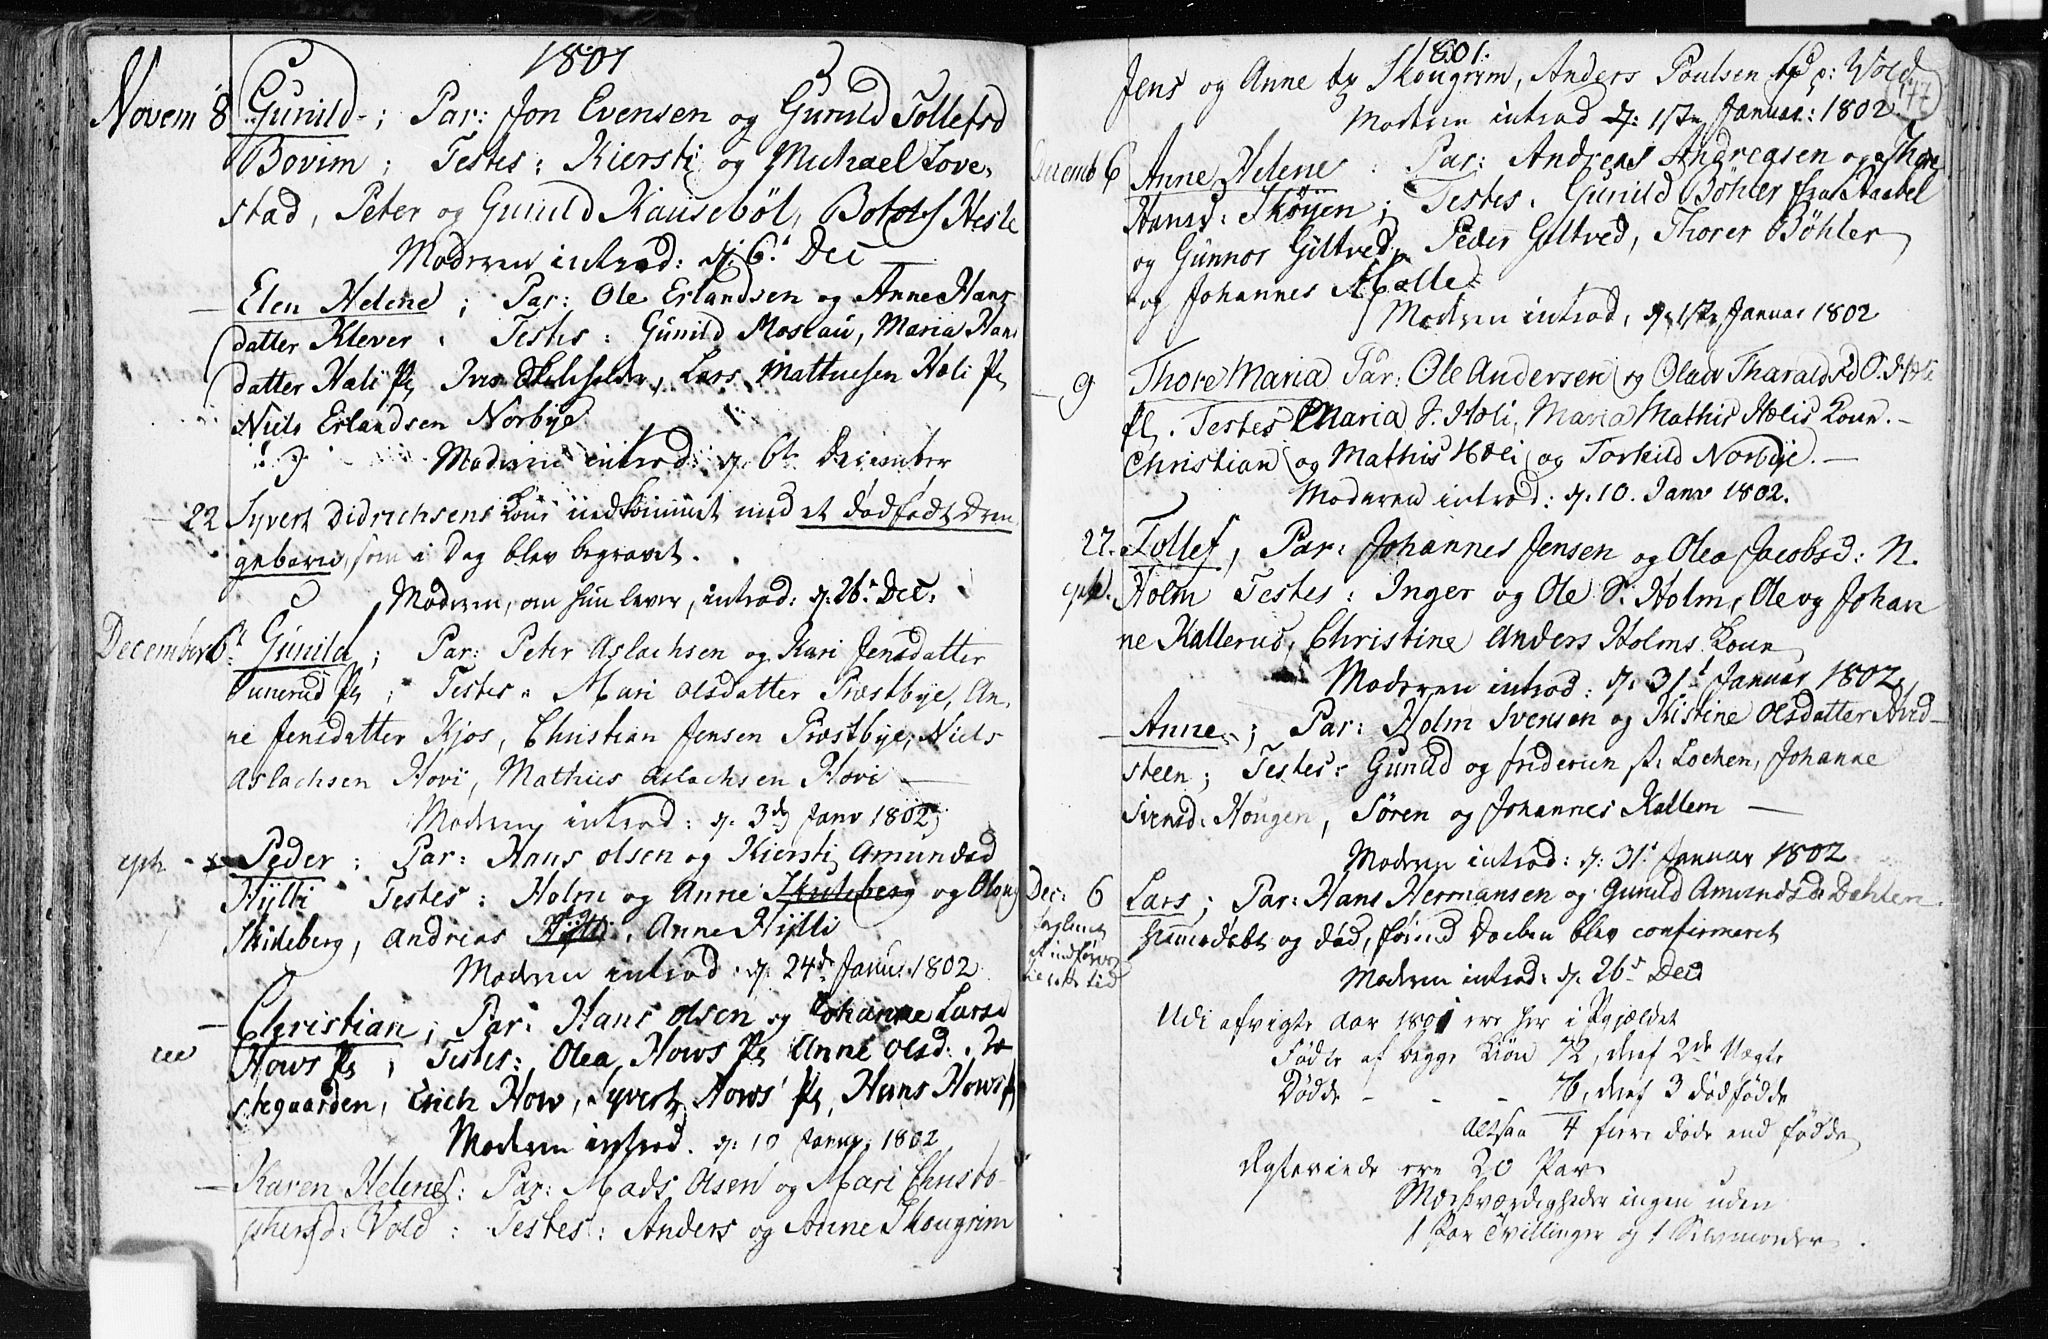 1801
Novem 8 Gunild ; Par: Jon Evensen og Gunild Tollefsd
Bovim ; Testes : Kiersti og Michael Love,
stad, Peter og Gunild Kausebøl, Botolf Hesle
Moderen introd: d: 6' Dec
— Elen Helene ; Par: Ole Erlandsen og Anne Hans
datter Klever : Testes : Gunild Moslau, Maria Hans
datter Hæli Pl, Lars Mathiesen Hæli Pl
Niels Erlandsen Norbye
Moderen introd: d. 6te December
— 22 Syvert Didrichsens Kone nedkommet med et dødfødt Dren
gebarn, som i Dag blev begravet.
Moderen, om hun lever, introd: d: 26' Dec:
December 6' Gunild ; Par: Peter Aslachsen og Kari Jensdatter
Pl ; Testes : Mari Olsdatter Præstbye, An,
ne Jensdatter Kjos, Christian Jensen Præstbye, Niels
Aslachsen Hovi, Mathies Aslachsen Hovi —
Moderen introd: d. 3de Janv 1802
eph - Peder ; Par: Hans Olsen og Kiersti Amundsd
Hylli Testes : Holm og Anne Skideberg og Olaug
Skideberg, Andreas Hylli, Anne Hylli
Moderen introd. d: 24de Janu. 1802
— Christian ; Par: Hans Olsen og Johanne Larsd
Hows Pl ; Testes: Olea Hows Pl Anne Olsd. Præ
stegaarden, Erich How, Syvert Hows' Pl, Hans Hows Pl
Moderen introd. d: 10 Janv. 1802
— Karen Helene : Par: Mads Olsen og Mari Christo-
phersd: Vold : Testes : Anders og Anne Skougrim
1801.
Jens og Anne Skougrim, Anders Poulsen Vold
147
Moderen introd d: 1ste Januar: 1802
Decemb 6 Anne Helene : Par: Andreas Andreasen og Thore
Hansd: Skøyen ; Testes : Gunild Bøhler
og Gunnor Giltved, Peder Giltved, Thorer Bøhler
og Johannes Mælle
Moderen introd, d. 1ste Januar 1802
— 9 Thore Maria Par: Ole Andersen og Olava Tharaldsd S. Hæli
Pl. Testes Maria S. Hæli, Maria Mathis Hælis Kone. —
Christian og Mathis Hæli og Torkild Norbye. —
Moderen introd: d. 10. Janv 1802.
27. Tollef, Par: Johannes Jensen og Olea Jacobsd: N.
eph. Holm Testes : Inger og Ole S. Holm, Ole og Johan
ne Kallerud, Christine Anders Holms Kone
Moderen introd: d: 31' Januar 1802
— Anne ; Par: Holm Svensen og Kistine Olsdatter Hvid-
steen ; Testes: Gunild og friderich Løchen, Johanne
Svensd. Hougen, Søren og Johannes Kallem —
Moderen introd: d: 31' Januar 1802
Dec: 6 Lars ; Par: Hans Hermansen og Gunild Amundsd: Dahlen
forglemt at indføre i rette tid
hiemedøbt og død, førend Daaben blev confirmeret
Moderen introd: d. 26' Dec
Udi afvigte Aar 1801 ere her i Pgjældet
Fødte af begge Kiøn 72, deraf 2de Uægte
Dødde - - - 76, deraf 3 dødfødde
Altsaa 4 flere døde end fødde
Ægteviede ere 20 Par
Mærkværdigheder ingen uden
1 Par Tvillinger og 1 Selvmorder.